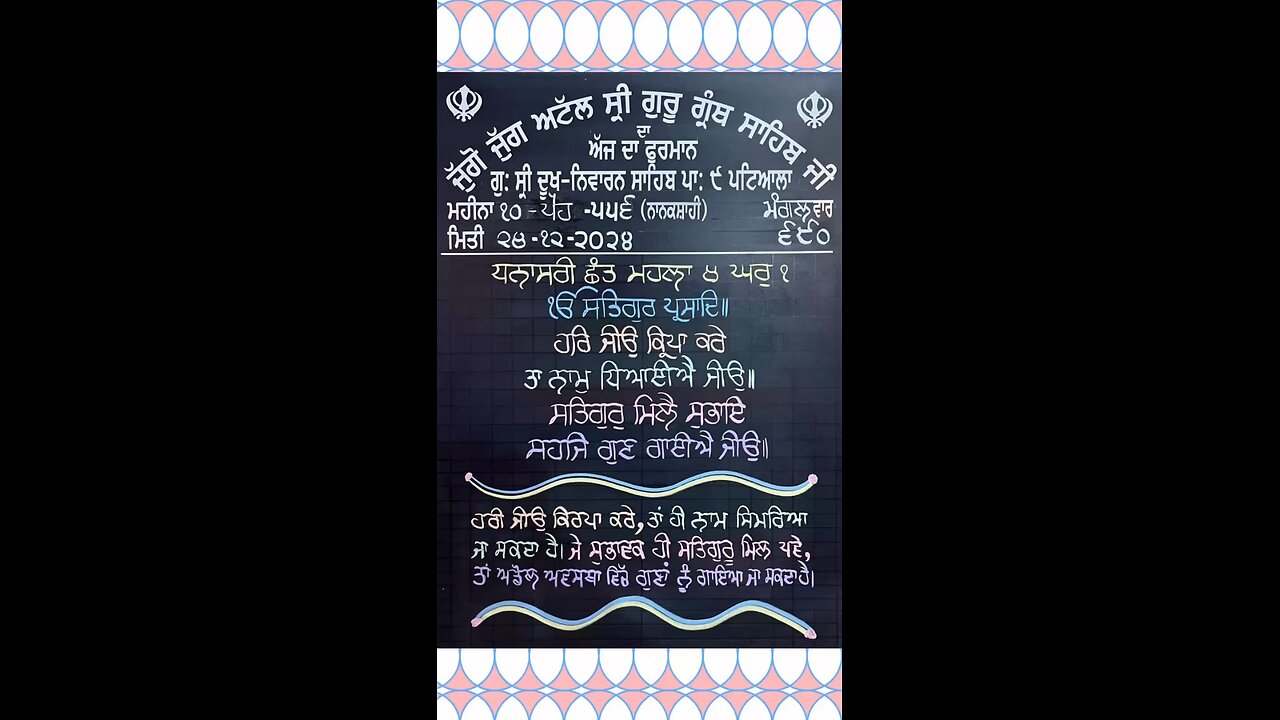 ਜੁੱਗੋ ਜੁੱਗ ਅਟੱਲ ਸ੍ਰੀ ਗੁਰੂ ਗ੍ਰੰਥ ਸਾਹਿਬ ਜੀ
ਦਾ
ਅੱਜ ਦਾ ਫੁਰਮਾਨ
ਗੁ: ਸ੍ਰੀ ਦੂਖ-ਨਿਵਾਰਨ ਸਾਹਿਬ ਪਾ: ੯ ਪਟਿਆਲਾ
ਮਹੀਨਾ ੧੦ - ਪੋਹ -੫੫੬ (ਨਾਨਕਸ਼ਾਹੀ) ਮੰਗਲਵਾਰ
ਮਿਤੀ ੨੪-੧੨-੨੦੨੪ ੬੯੦
ਧਨਾਸਰੀ ਛੰਤ ਮਹਲਾ ੪ ਘਰੁ ੧
ੴ ਸਤਿਗੁਰ ਪ੍ਰਸਾਦਿ॥
ਹਰਿ ਜੀਉ ਕ੍ਰਿਪਾ ਕਰੇ
ਤਾ ਨਾਮੁ ਧਿਆਈਐ ਜੀਉ॥
ਸਤਿਗੁਰੁ ਮਿਲੈ ਸੁਭਾਇ
ਸਹਜਿ ਗੁਣ ਗਾਈਐ ਜੀਉ॥
ਹਰੀ ਜੀਉ ਕਿਰਪਾ ਕਰੇ, ਤਾਂ ਹੀ ਨਾਮ ਸਿਮਰਿਆ
ਜਾ ਸਕਦਾ ਹੈ। ਜੇ ਸੁਭਾਵਕ ਹੀ ਸਤਿਗੁਰੂ ਮਿਲ ਪਵੇ,
ਤਾਂ ਅਡੋਲ ਅਵਸਥਾ ਵਿੱਚ ਗੁਣਾਂ ਨੂੰ ਗਾਇਆ ਜਾ ਸਕਦਾ ਹੈ।